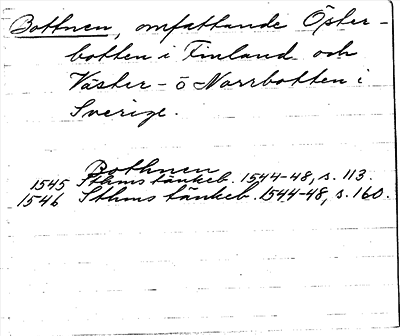 Bottnen, omfattande Öster-
botten i Finland och
Väster- o Norrbotten i
Sverige.
Bothnen
1545 Sthms tänkeb. 1544-48, s. 113.
1546 Sthms tänkeb. 1544-48, s. 160.